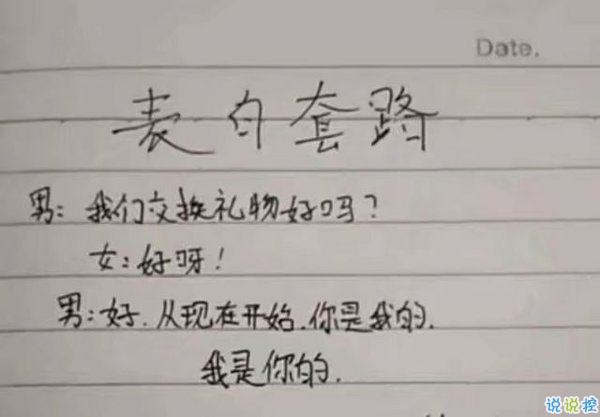 Date.
表白套路
男：我们交换礼物好吗？
女：好呀！
男：好.从现在开始.你是我的.
我是你的.
说说控